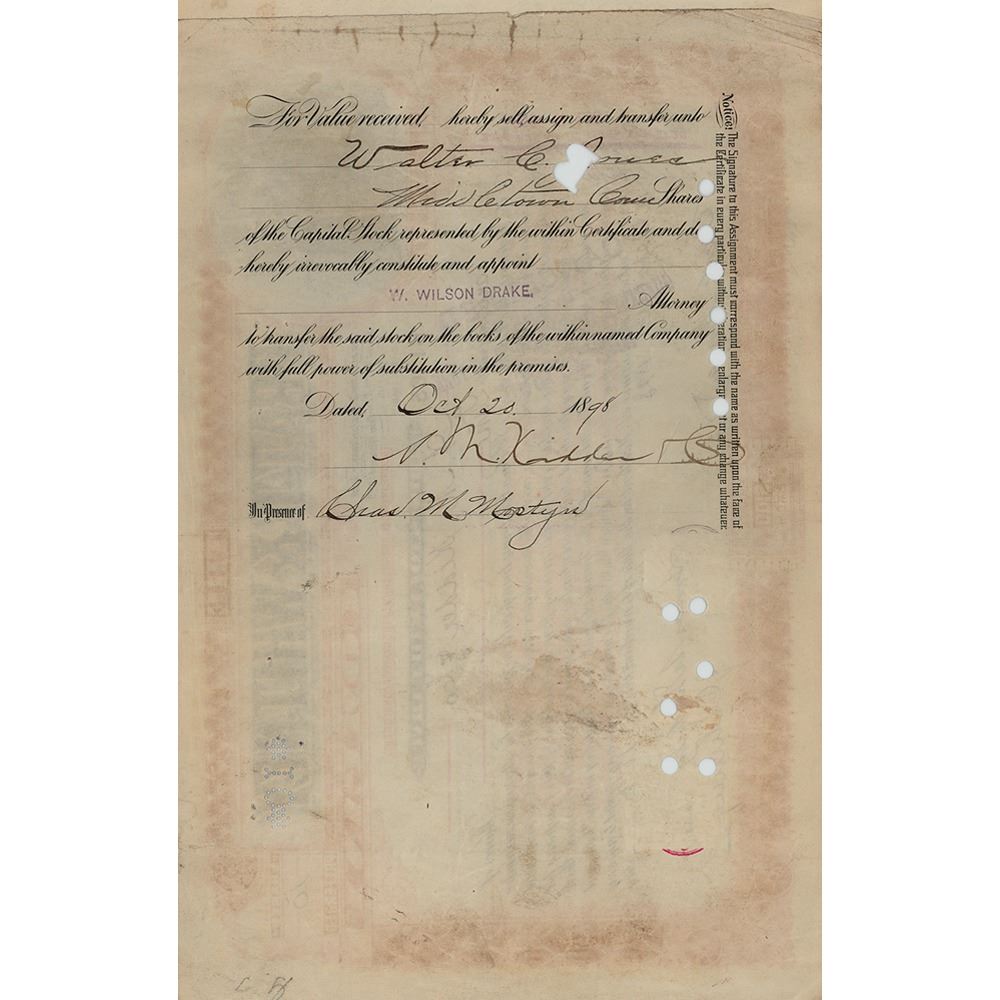 For Value received, hereby sell, assign and transfer unto
Walter C. Jones
Middletown Conn Shares
of the Capital Stock represented by the within Certificate and do
hereby irrevocably constitute and appoint
W. WILSON DRAKE.
Attorney
to transfer the said stock on the books of the within named Company
with full power of substitution in the premises.
Dated, Oct 20 1898
Kidder & Co
In Presence of Chas. M Mostyn
Notice! The Signature to this Assignment must correspond with the name as written upon the face of
the Certificate in every without enlarge or any change whatever.